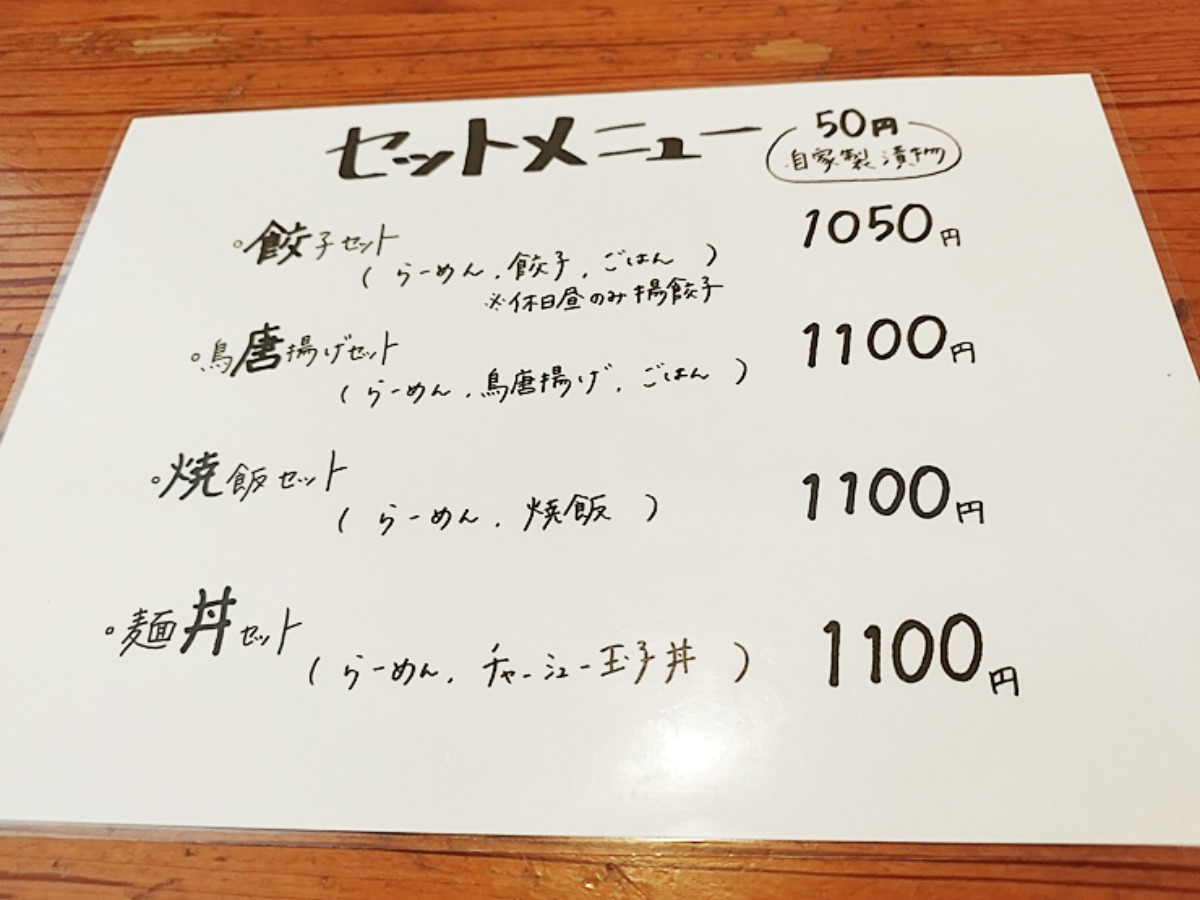 セットメニュー
50円
自家製漬物
餃子セット 1050円
(らーめん、餃子、ごはん)
※休日昼のみ揚餃子
鳥唐揚げセット 1100円
(らーめん、鳥唐揚げ、ごはん)
焼飯セット 1100円
(らーめん、焼飯)
麺丼セット 1100円
(らーめん、チャーシュー玉子丼)